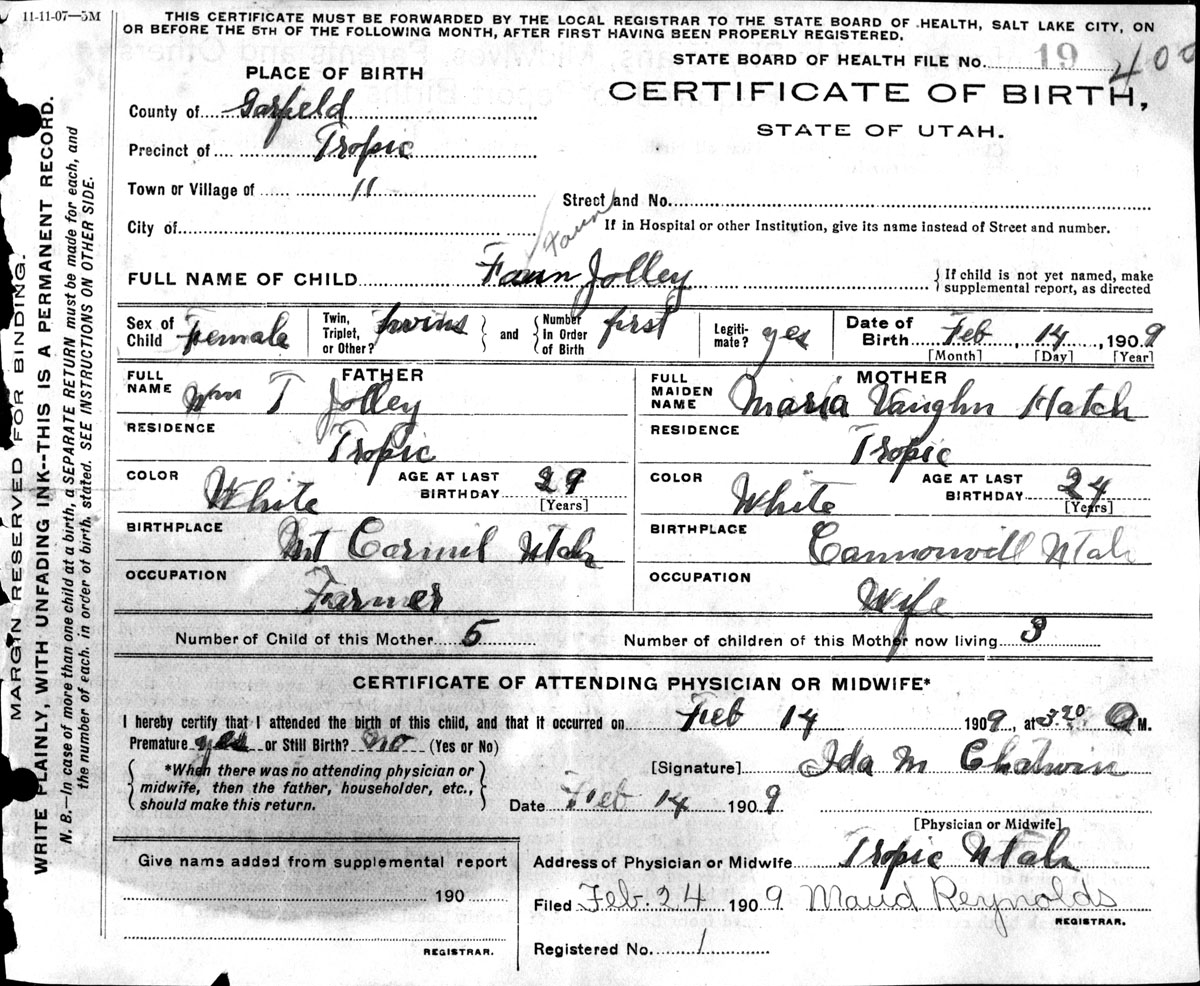 11-11-07—5M
THIS CERTIFICATE MUST BE FORWARDED BY THE LOCAL REGISTRAR TO THE STATE BOARD OF HEALTH, SALT LAKE CITY, ON
OR BEFORE THE 5TH OF THE FOLLOWING MONTH, AFTER FIRST HAVING BEEN PROPERLY REGISTERED.
STATE BOARD OF HEALTH FILE No. 19 400
PLACE OF BIRTH
CERTIFICATE OF BIRTH,
STATE OF UTAH.
County of Garfield
Precinct of Tropic
Town or Village of "
Street and No.
City of
If in Hospital or other Institution, give its name instead of Street and number.
Faun
FULL NAME OF CHILD Faun Jolley
{ If child is not yet named, make
supplemental report, as directed
Sex of Child Female
Twin, Triplet, or Other? Twins } and { Number In Order of Birth first
Legiti- mate? yes
Date of Birth Feb, 14, 1909
[Month] [Day] [Year]
FATHER
FULL NAME Wm T Jolley
RESIDENCE Tropic
COLOR White
AGE AT LAST BIRTHDAY 29
[Years]
BIRTHPLACE Mt Carmil Utah
OCCUPATION Farmer
MOTHER
FULL MAIDEN NAME Maria Vaughn Hatch
RESIDENCE Tropic
COLOR White
AGE AT LAST BIRTHDAY 24
[Years]
BIRTHPLACE Cannonvill Utah
OCCUPATION Wife
Number of Child of this Mother 5
Number of children of this Mother now living 3
CERTIFICATE OF ATTENDING PHYSICIAN OR MIDWIFE*
I hereby certify that I attended the birth of this child, and that it occurred on Feb 14 1909, at 3.20 A M.
Premature yes or Still Birth? No (Yes or No)
{ *When there was no attending physician or
midwife, then the father, householder, etc.,
should make this return. }
[Signature] Ida M Chatwin
Date Feb 14 1909
[Physician or Midwife]
Give name added from supplemental report
190
REGISTRAR.
Address of Physician or Midwife Tropic Utah
Filed Feb. 24 1909 Maud Reynolds
REGISTRAR.
Registered No. 1
MARGIN RESERVED FOR BINDING.
WRITE PLAINLY, WITH UNFADING INK--THIS IS A PERMANENT RECORD.
N. B.—In case of more than one child at a birth, a SEPARATE RETURN must be made for each, and
the number of each, in order of birth, stated. SEE INSTRUCTIONS ON OTHER SIDE.